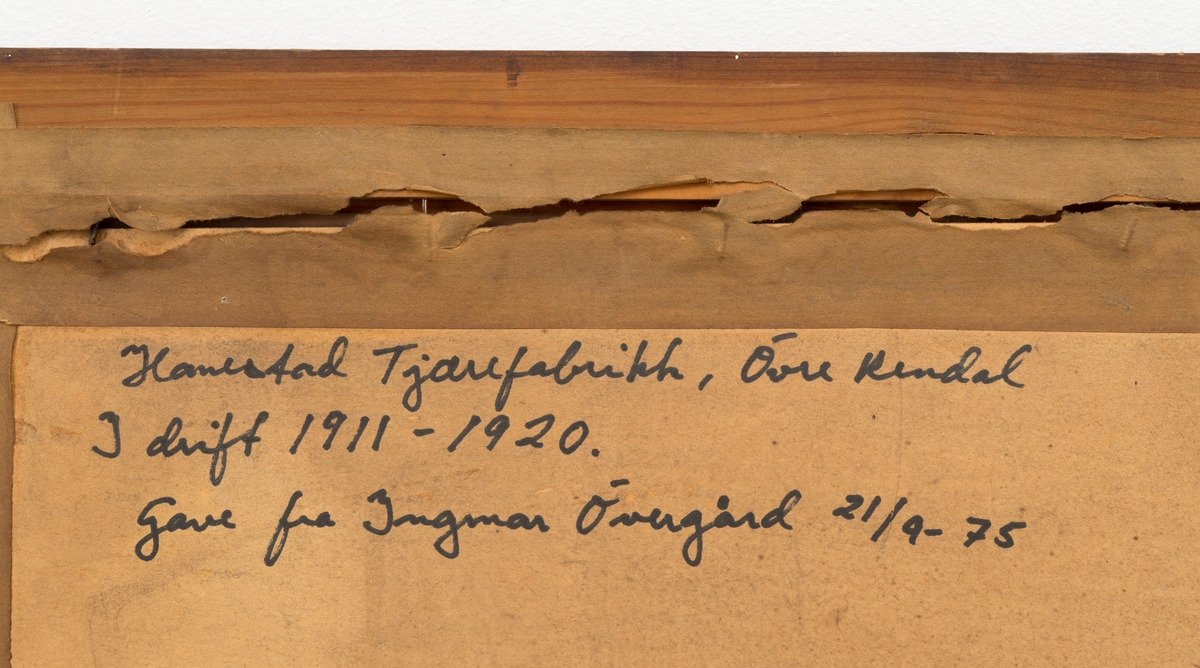 Hanestad Tjærefabrikk, Övre Rendal
I drift 1911-1920.
Gave fra Ingmar Övergård 21/9-75